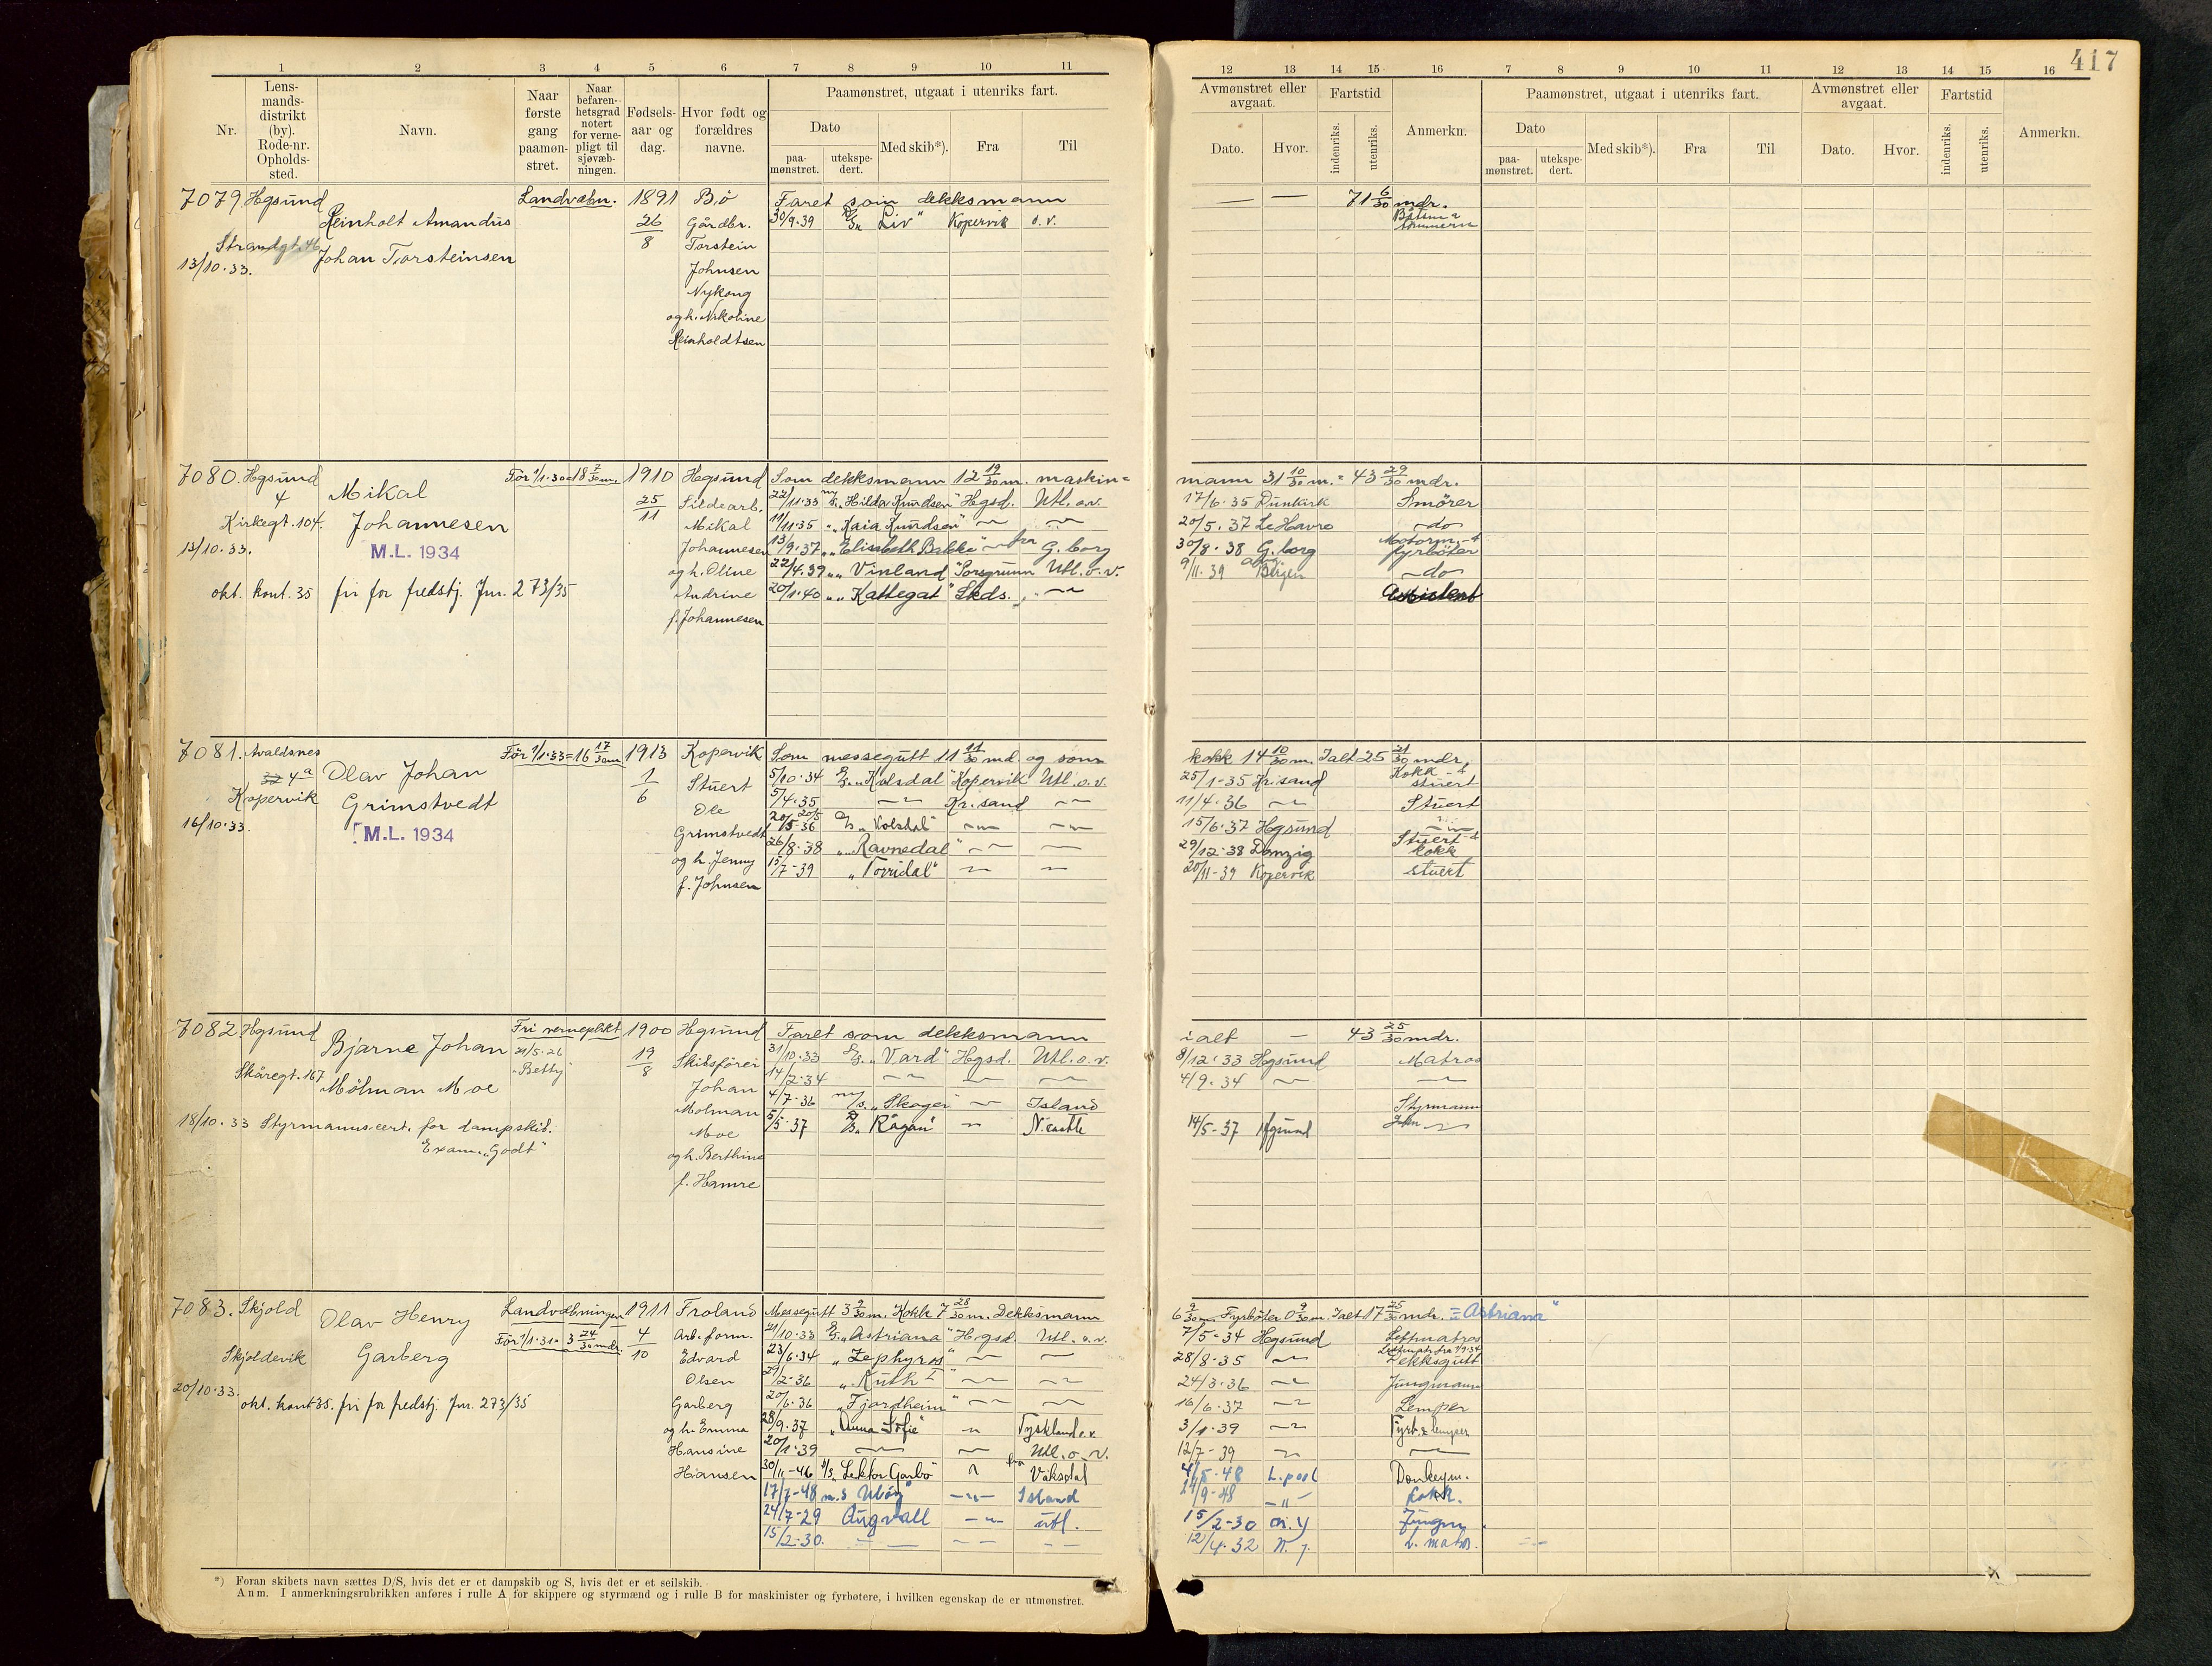 417
1 2 3 4 5 6 7 8 9 10 11
12 13 14 15 16 7 8 9 10 11 12 13 14 15 16
Nr.
Lens-
mands-
distrikt
(by).
Rode-nr.
Opholds-
sted.
Navn.
Naar
første
gang
paamøn-
stret.
Naar
befaren-
hetsgrad
notert
for verne-
pligt til
sjøvæb-
ningen.
Fødsels-
aar og
dag.
Hvor født og
forældres
navne.
Paamønstret, utgaat i utenriks fart.
Dato
paa-
mønstret.
utekspe-
dert.
Med skib*).
Fra
Til
Avmønstret eller
avgaat.
Dato.
Hvor.
Fartstid
indenriks.
utenriks.
Anmerkn.
Paamønstret, utgaat i utenriks fart.
Dato
paa-
mønstret.
utekspe-
dert.
Med skib*).
Fra
Til
Avmønstret eller
avgaat.
Dato.
Hvor.
Fartstid
indenriks.
utenriks.
Anmerkn.
7079. Hgsund
Strandgt. 46
13/10.33.
Reinholt Amandus
Johan Torsteinsen
Landvæbn.
1891
26
8
Bö
Gårdbr.
Torstein
Johnsen
Nykong
og h. Nikoline
Reinholdtsen
Faret som dekksmann
30/9.39 "Liv" Kopervik o.v.
— — 71 6/30 mdr.
7080. Hgsund
4
Kirkegt. 104.
13/10.33.
Mikal
Johannesen
M.L. 1934
okt. kont. 35 fri for fredstj. Jnr. 273/35
Før 1/1.30=18 7/30 m.
1910
25
11
Hgsund
Sildearb.
Mikal
Johannesen
og h. Oline
Andrine
f. Johannesen
Som dekksmann 12 19/30 m. maskin=
mann 31 10/30 m. = 43 29/30 mdr.
22/11.33 m/s. "Hilda Knudsen" Hgsd. Utl. o.v. 17/6.35 Dunkirk Smörer
19/11.35 " "Kaia Knudsen" — — 20/5.37 Le Havre —do—
13/9.37 " "Elisabeth Bakke" — for G. borg 30/8.38 G. borg Motorm. & fyrböter
22/4.39 " "Vinland" Porsgrunn Utl. o.v. 9/11.39 Bergen —do—
20/1.40 " "Kattegat" Skds. — Assistent
7081. Avaldsnes
32 4a
Kopervik
16/10.33.
Olav Johan
Grimstvedt
M.L. 1934
Før 1/1.33=16 17/30 m
1913
1
6
Kopervik
Stuert
Ole
Grimstvedt
og h. Jenny
f. Johnsen
Som messegutt 11 11/30 md. og som
kokk 14 10/30 m. Ialt 25 21/30 mdr.
5/10.34 D/S. "Kolsdal" Kopervik Utl. o.v. 25/1-35 Kr.sand Kokk & stuert
5/4.35 — Kr. sand — 11/4.36 — Stuert
20/5.36 D/S "Kolsdal" — — 15/6.37 Hgsund —
26/8.38 " "Ravnedal" — — 29/12.38 Danzig Stuert & kokk
15/7-39 "Torridal" — — 20/11-39 Kopervik stuert
7082. Hgsund
Skåregt. 167
18/10.33
Bjarne Johan
Mölman Moe
Styrmannscert. for dampskib.
Exam. "Godt"
Fri verneplikt
21/5.26
"Betty"
1900
19
8
Hgsund
Skibsförer
Johan
Molman
Moe
og h. Berthine
f. Hamre
Faret som dekksmann
i alt — 43 25/30 mdr.
31/10.33 D/S. "Vard" Hgsd. Utl. o.v. 8/12.33 Hgsund Matros
14/2.34 — — — 4/9.34 — —
4/7.36 m/s. "Skogei" — Island Styrmann
5/5-37 D/S. "Rågan" — N.castle 14/5-37 Hgsund
7083. Skjold
Skjoldevik
20/10.33.
Olav Henry
Garberg
okt. kont 35. fri for fredstj. Jnr. 273/35
Landvæbningen
Før 1/1.31= 3 24/30 mdr.
1911
4
10
Froland
Arb. form.
Edvard
Olsen
Garberg
og h. Emma
Hansine
Hansen
Messegutt 3 9/30 m. Kokk 7 28/30 m. Dekksmann
6 9/30 m. Fyrböter 0 9/30 m. Ialt 17 25/30 mdr. = "Astriana"
21/10.33 D/S. "Astriana" Hgsd. Utl. o.v. 7/5-34 Hgsund Lettmatros
23/6.34 "Zephyros" — — 28/8.35 — Dekksgutt
29/2-36 "Ruth I" — — 24/3.36 — Jungmann
20/6.36 "Fjordheim" — — 16/6.37 — Lemper
28/9.37 "Anna Sofie" — Tyskland o.v. 3/1.39 — Fyrb. & lemper
20/1.39 — — Utl. o.v. 12/7-39 — —
30/11-46 D/S "Lektor Garbo" — fra Vaksdal 4/5-48 L.pool Donkeym.
17/7-48 m.s — Island /9-48 —"— Kokk.
24/7-29 Augvall —"— utl. 15/2-30 N.Y Jungm.
15/2-30. — — — — 12/4.32 N.Y. L. matr.
*) Foran skibets navn sættes D/S, hvis det er et dampskib og S, hvis det er et seilskib.
Anm. I anmerkningsrubrikken anføres i rulle A for skippere og styrmænd og i rulle B for maskinister og fyrbøtere, i hvilken egenskap de er utmønstret.